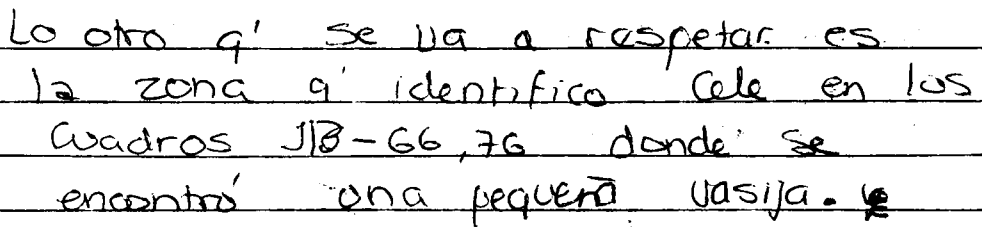 Lo otro q' se va a respetar es
la zona q' identifico Cele en los
Cuadros JB-66,76 donde se
encontró una pequeña vasija.